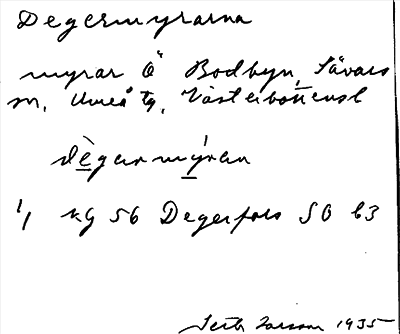 Degermyrarna
myrar Ö Bodbyn, Sävars
sn, Umeå tg, Västerbottensl
dègermýran
1/1 KG 56 Degerfors SO b3
Larsson 1935